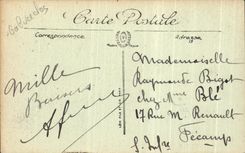 Carte Postale
Correspondance
Adresse
Mille
Baisers
Mademoiselle
Raymonde Bigot
chez Mme Blé
17 Rue M. Renault
Fécamp
S. Infre